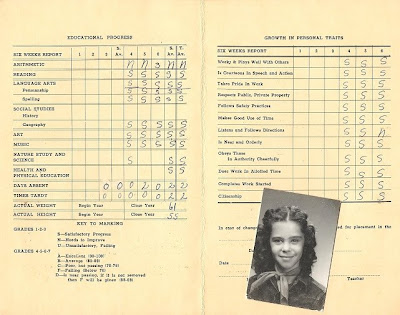 EDUCATIONAL PROGRESS
SIX WEEKS REPORT 1 2 3 S. Av. 4 5 6 S. Av. Y. Av.
ARITHMETIC N N S N N
READING S S S S S
LANGUAGE ARTS S S S S S
Penmanship S S S S S
Spelling S S S S S
SOCIAL STUDIES
History
Geography S S S S S
ART S S S S S
MUSIC S S S S S
NATURE STUDY AND
SCIENCE S S S
HEALTH AND
PHYSICAL EDUCATION S S
DAYS ABSENT 0 0 0 2 0 2 2
TIMES TARDY 0 0 0 0 0
ACTUAL WEIGHT Begin Year Close Year 61
ACTUAL HEIGHT Begin Year Close Year 55
KEY TO MARKING
GRADES 1-2-3
S—Satisfactory Progress
N—Needs to Improve
U—Unsatisfactory, Failing
GRADES 4-5-6-7
A—Excellent
B—Average
C—Poor, but passing
F—Failing (Below 70)
then F will be given
GROWTH IN PERSONAL TRAITS
SIX WEEKS REPORT 1 2 3 4 5 6
Works & Plays Well With Others S S S
Is Courteous in Speech and Action S S S
Takes Pride In Work S S S
Respects Public, Private Property S S S
Follows Safety Practices S S S
Makes Good Use of Time S S S
Listens and Follows Directions S S N
Is Neat and Orderly S S S
Obeys Those
In Authority Cheerfully S S S
Does Work In Allotted Time S S S
Completes Work Started S S S
Citizenship S S S
In case of
placement in the
Teacher